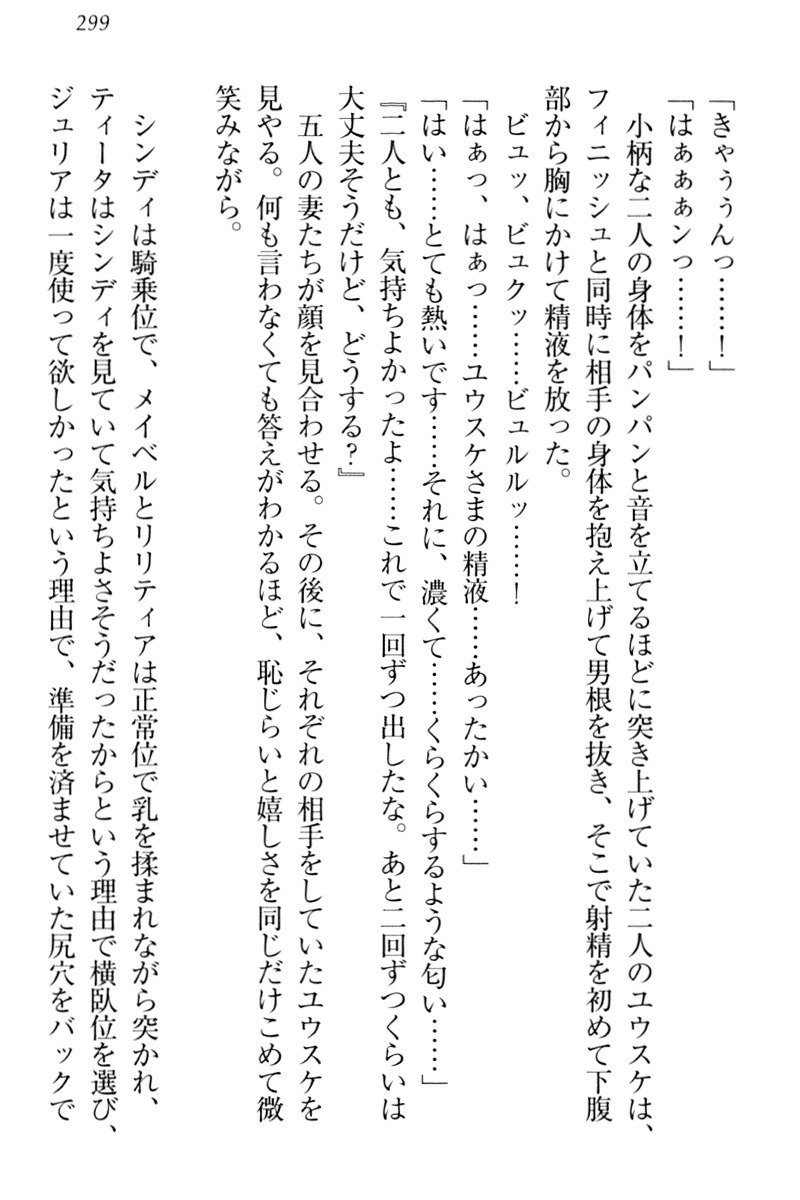 299
「きゃぅぅんっ……！」
「はぁぁぁンっ……！」
　小柄な二人の身体をパンパンと音を立てるほどに突き上げていた二人のユウスケは、
フィニッシュと同時に相手の身体を抱え上げて男根を抜き、そこで射精を初めて下腹
部から胸にかけて精液を放った。
　ビュッ、ビュクッ……ビュルルッ……！
「はぁっ、はぁっ……ユウスケさまの精液……あったかい……」
「はい……とても熱いです……それに、濃くて……くらくらするような匂い……」
『二人とも、気持ちよかったよ……これで一回ずつ出したな。あと二回ずつくらいは
大丈夫そうだけど、どうする？』
　五人の妻たちが顔を見合わせる。その後に、それぞれの相手をしていたユウスケを
見やる。何も言わなくても答えがわかるほど、恥じらいと嬉しさを同じだけこめて微
笑みながら。
　シンディは騎乗位で、メイベルとリリティアは正常位で乳を揉まれながら突かれ、
ティータはシンディを見ていて気持ちよさそうだったからという理由で横臥位を選び、
ジュリアは一度使って欲しかったという理由で、準備を済ませていた尻穴をバックで